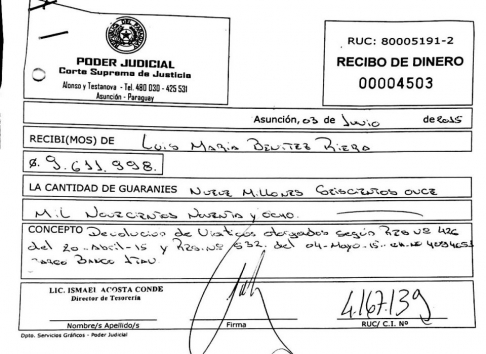 PODER JUDICIAL
Corte Suprema de Justicia
Alonso y Testanova - Tel. 480 030 - 425 531
Asunción - Paraguay
RUC: 80005191-2
RECIBO DE DINERO
00004503
Asunción, 03 de Junio de 2015
RECIBI(MOS) DE Luis María Benitez Riera
₲. 9.611.998.
LA CANTIDAD DE GUARANIES Nueve Millones Seiscientos Once
Mil Novecientos Noventa y Ocho.
CONCEPTO Devolucion de Viaticos otorgados según Rzo Nº 426
del 20-Abril-15 y Rzo Nº 532 del 04-Mayo-15
Banco Itau
LIC. ISMAEL ACOSTA CONDE
Director de Tesorería
4.167.139
Nombre/s Apellido/s Firma RUC/ C.I. Nº
Dpto. Servicios Gráficos - Poder Judicial